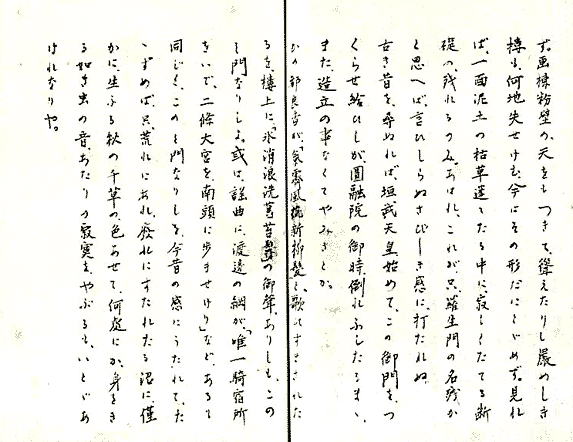 ず。画棟粉壁の、天をもつきて、聳えたりし厳めしき
樓も、何地失せけむ、今はその形だにとゞめず。見れ
ば、一面泥土の枯草蓬々たる中に、寂しくたてる断
礎の、残れるのみ。あはれ、これが、只羅生門の名残か
と思へば、言ひしらぬさびしき感に、打たれぬ。
古き昔を、尋ぬれば、垣武天皇始めて、この御門を、つ
くらせ給ひしが、圓融院の御時、倒れふしたるまゝ、
また、造立の事なくてやみきとか。
かの都良香が、「気霽風梳新柳髪」と、歌ひすさまされた
るを、樓上に、「氷消浪洗舊苔鬚」の御聲、ありしも、この
門なりしよ。或は、謡曲に、渡邊の綱が、「唯一騎宿所
をいで、二條大宮を、南頭に歩ませけり」など、あるも
同じく、この門なりしを、今昔の感にうたれて、た
ゝずめば、只荒れにあれ、廃れにすたれたる沼に、僅
かに、生ふる秋の千草の、色あせて、何處にか、身をき
る如き虫の音、あたりの寂寞を、やぶるも、いとゞあ
はれなりや。